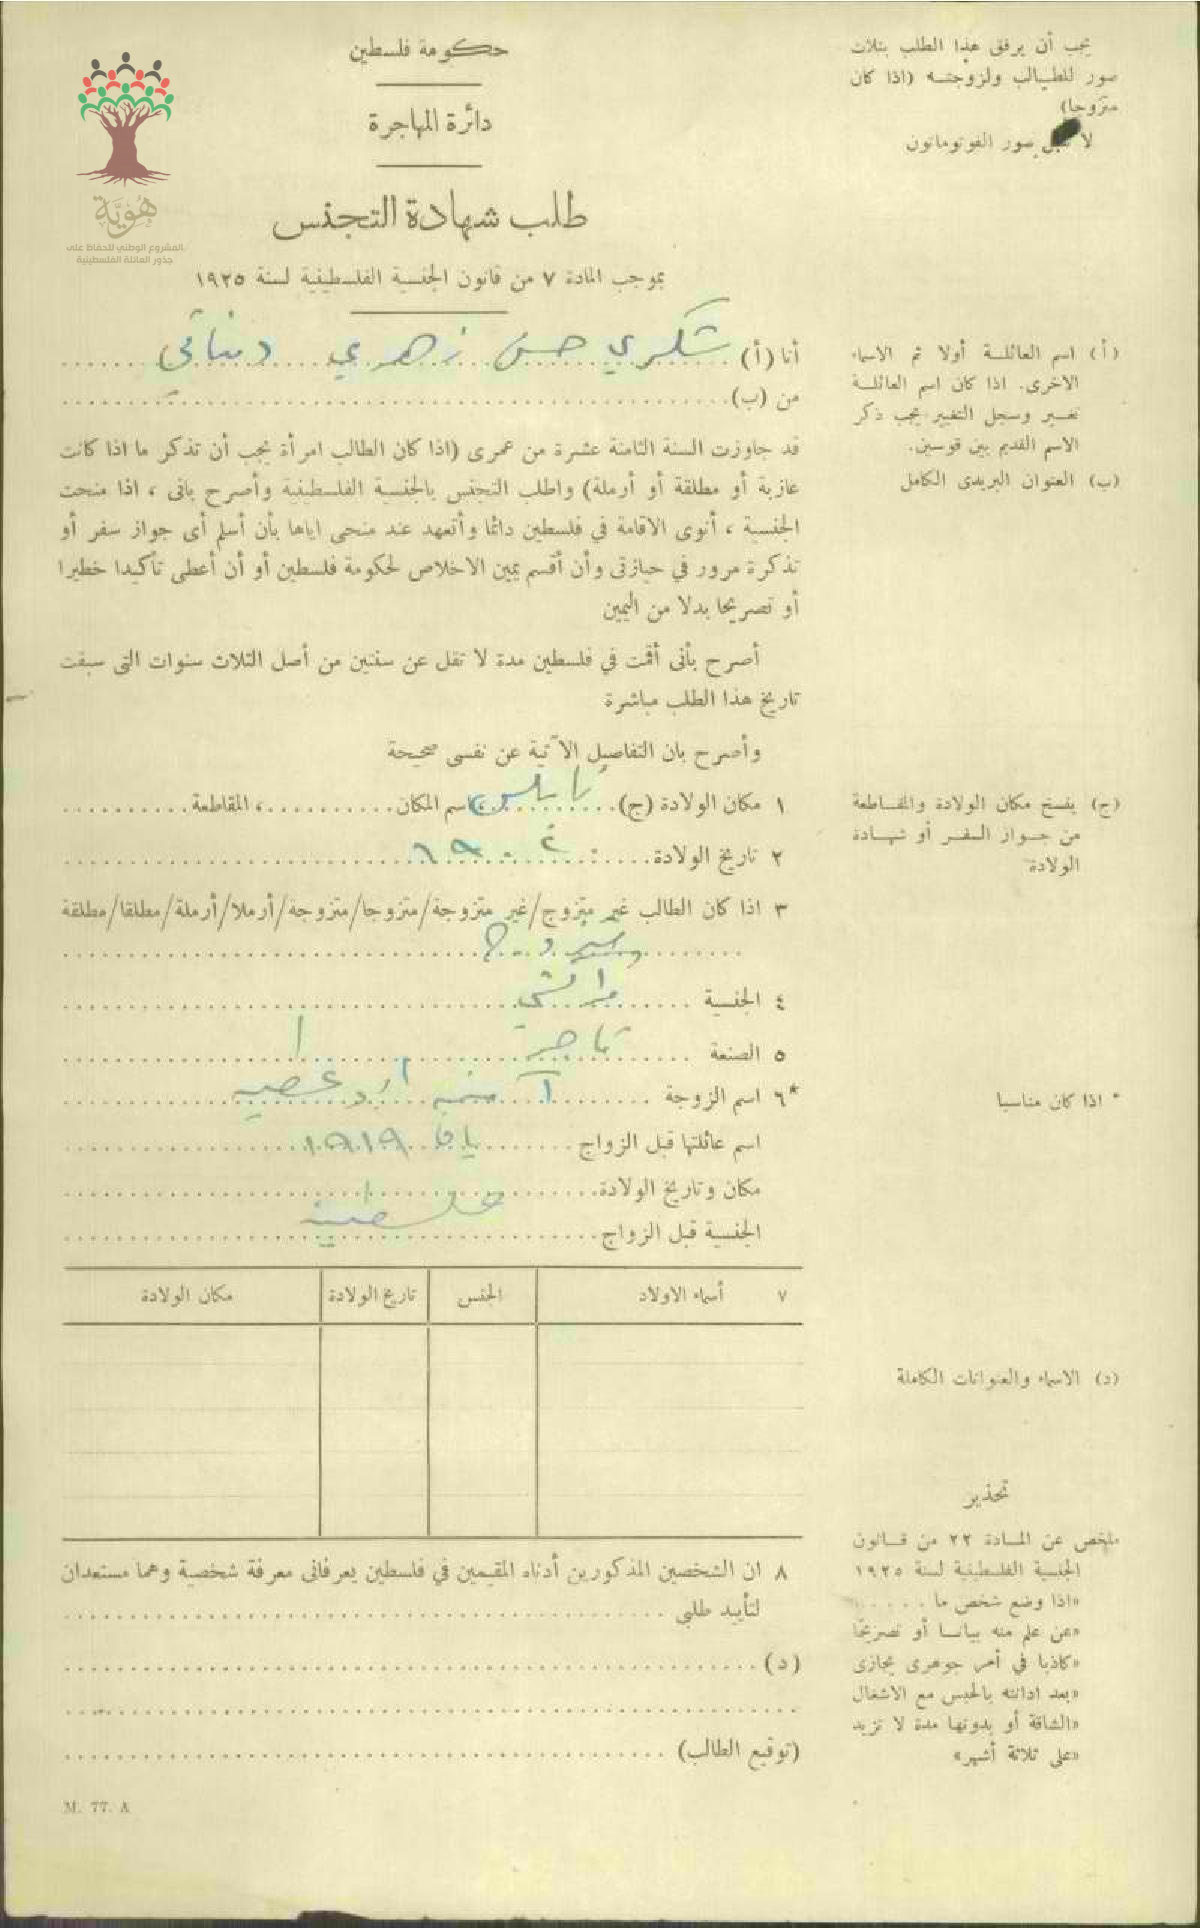 حكومة فلسطين
دائرة المهاجرة
طلب شهادة التجنس
بموجب المادة ٧ من قانون الجنسية الفلسطينية لسنة ١٩٢٥
هُويَّة
المشروع الوطني للحفاظ على
جذور العائلة الفلسطينية
يجب أن يرفق هذا الطلب بثلاث
صور للطالب ولزوجته (اذا كان
متزوجا)
لا تقبل صور الفوتوماتون
أنا (أ) شكري حسن زهدي
من (ب)
قد جاوزت السنة الثامنة عشرة من عمرى (اذا كان الطالب امرأة يجب أن تذكر ما اذا كانت
عازبة أو مطلقة أو أرملة) واطلب التجنس بالجنسية الفلسطينية وأصرح بانى ، اذا منحت
الجنسية ، أنوى الاقامة في فلسطين دائما وأتعهد عند منحى اياها بأن أسلم أى جواز سفر أو
تذكرة مرور في حيازتى وأن أقسم يمين الاخلاص لحكومة فلسطين أو أن أعطى تأكيدا خطيرا
أو تصريحا بدلا من اليمين
أصرح بأنى أقمت في فلسطين مدة لا تقل عن سنتين من أصل الثلاث سنوات التى سبقت
تاريخ هذا الطلب مباشرة
وأصرح بان التفاصيل الآتية عن نفسى صحيحة
١ مكان الولادة (ج) نابلس ، اسم المكان ، المقاطعة
٢ تاريخ الولادة
٣ اذا كان الطالب غير متزوج/غير متزوجة/متزوجا/متزوجة/أرملا/أرملة/مطلقا/مطلقة
متزوج
٤ الجنسية
٥ الصنعة تاجر
*٦ اسم الزوجة آمنه
اسم عائلتها قبل الزواج يافا ١٩١٩
مكان وتاريخ الولادة
الجنسية قبل الزواج فلسطينية
٧ أسماء الاولاد الجنس تاريخ الولادة مكان الولادة
٨ ان الشخصين المذكورين أدناه المقيمين في فلسطين يعرفانى معرفة شخصية وهما مستعدان
لتأييد طلبى
(د)
(توقيع الطالب)
M. 77. A
(أ) اسم العائلة أولا ثم الاسماء
الاخرى. اذا كان اسم العائلة
تغير وسجل التغيير يجب ذكر
الاسم القديم بين قوسين.
(ب) العنوان البريدى الكامل
(ج) ينسخ مكان الولادة والمقاطعة
من جواز السفر أو شهادة
الولادة
* اذا كان مناسبا
(د) الاسماء والعنوانات الكاملة
تحذير
ملخص عن المادة ٢٢ من قانون
الجنسية الفلسطينية لسنة ١٩٢٥
«اذا وضع شخص ما . . . . .
«عن علم منه بيانا أو تصريحا
«كاذبا في أمر جوهرى يجازى
«بعد ادانته بالحبس مع الاشغال
«الشاقة أو بدونها مدة لا تزيد
«على ثلاثة أشهر»